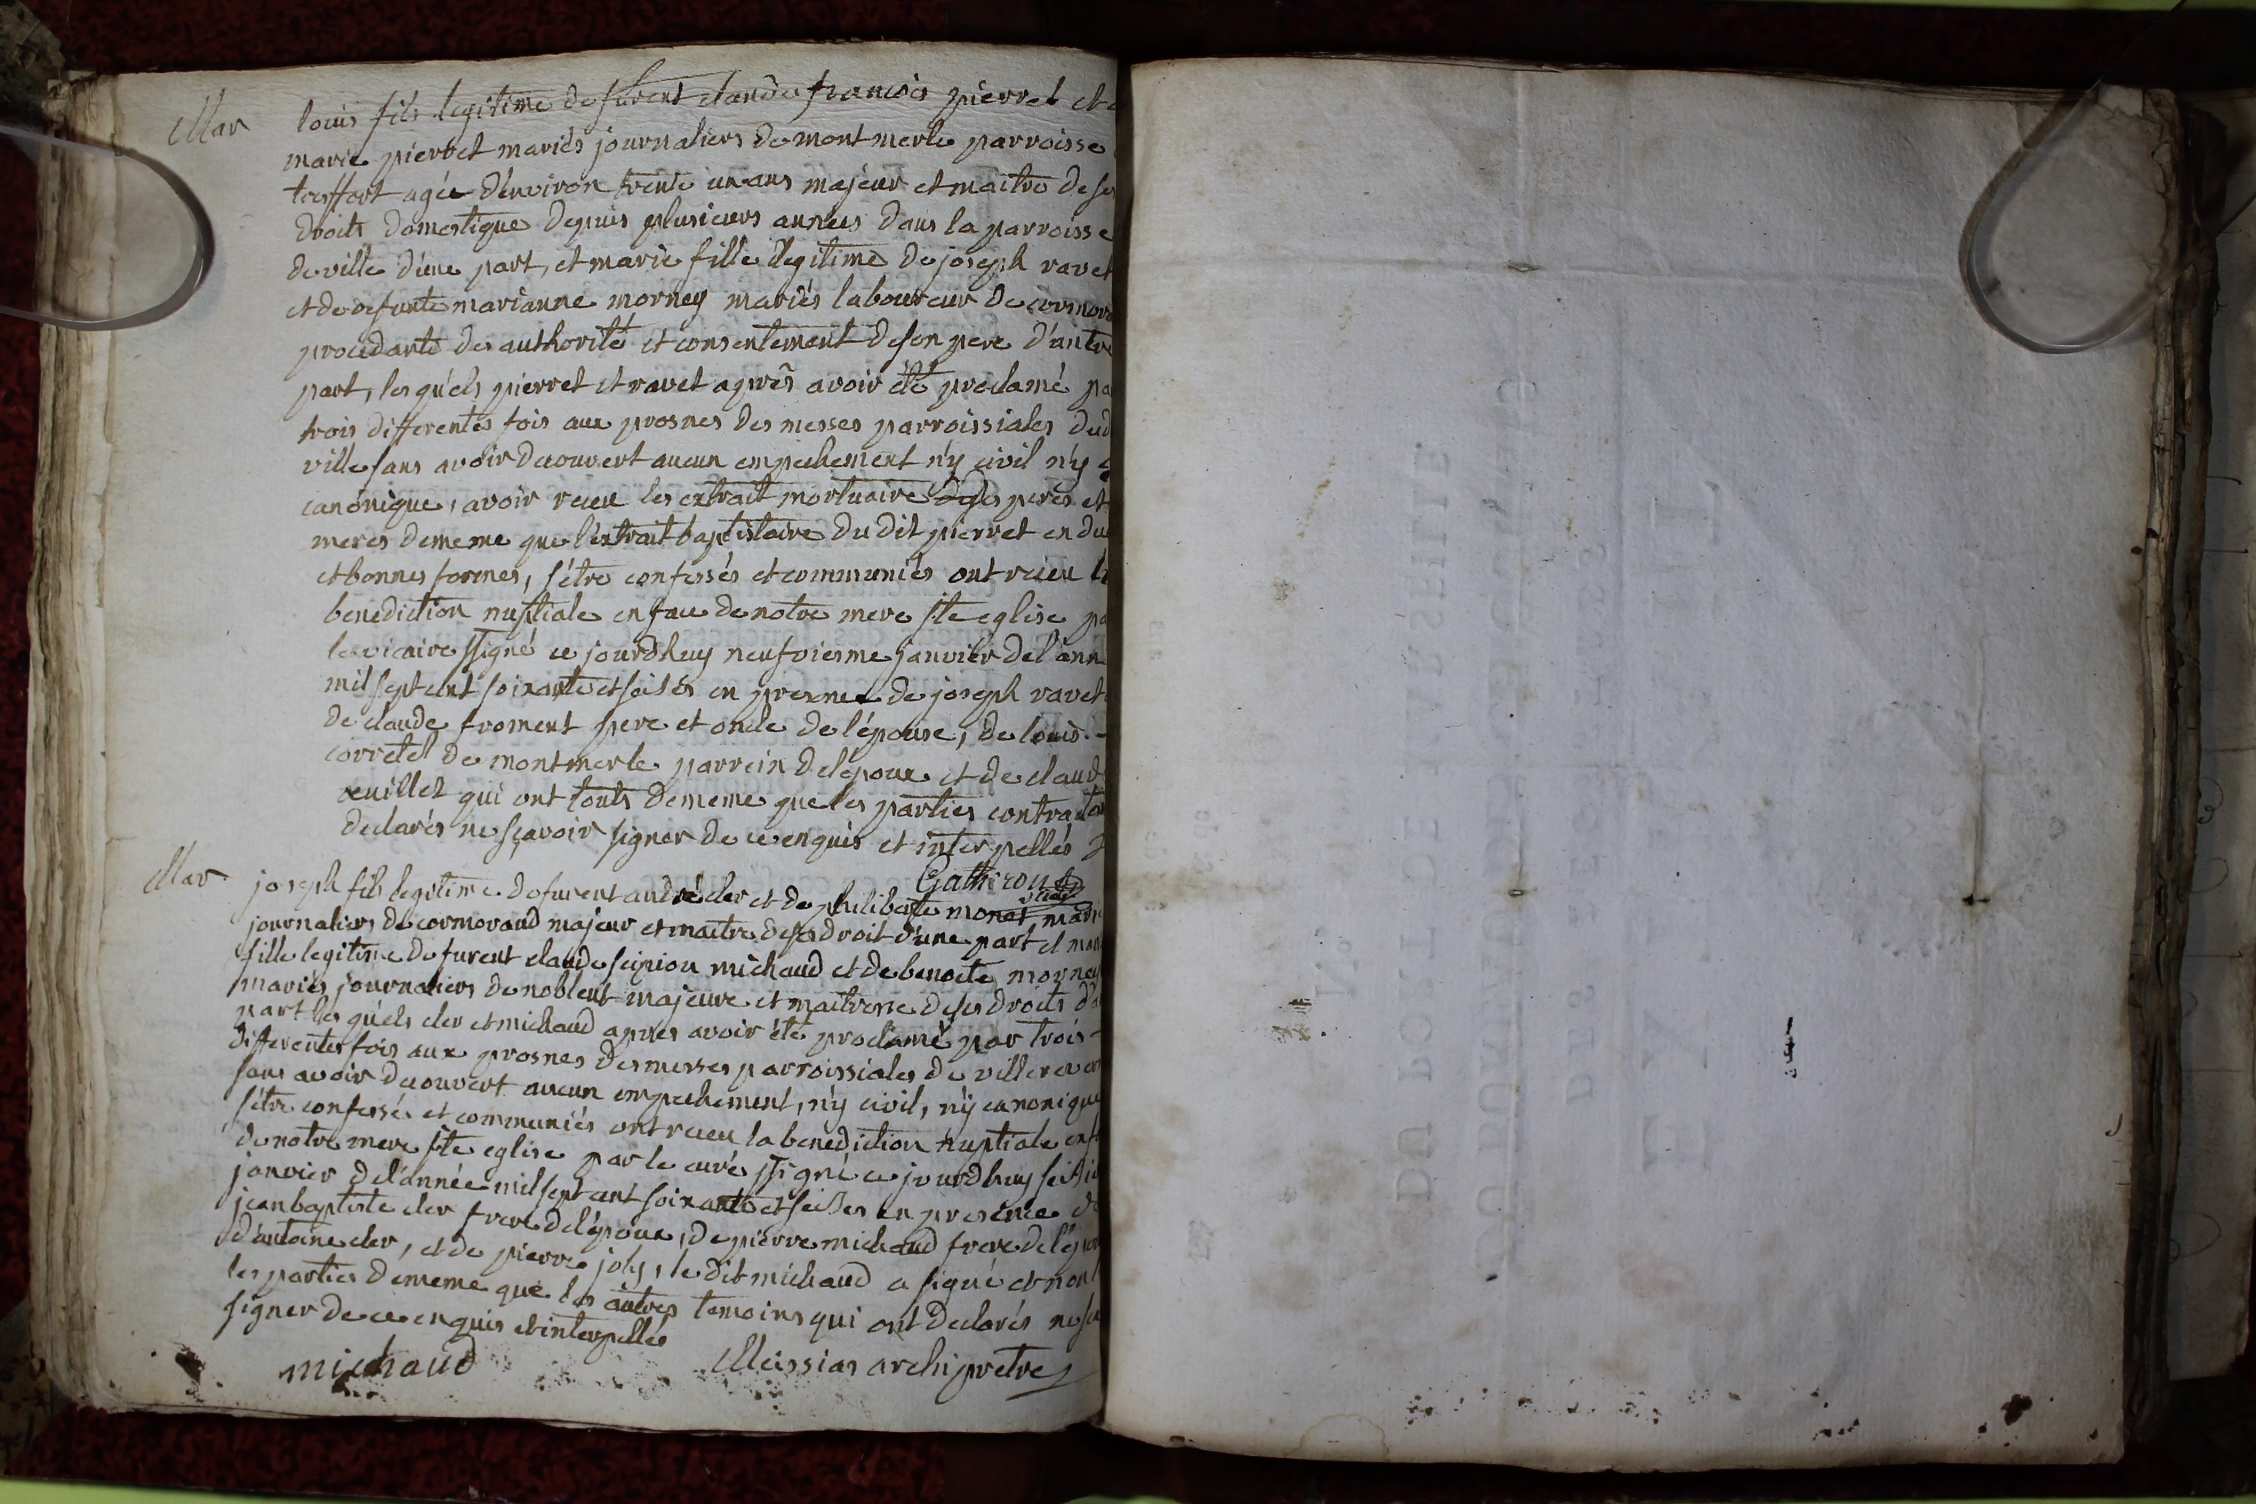 Mar
louis fils legitime de furent claude francois pierret et
marie pierret mariés journaliers de montmerle parroisse
treffort agée d'environ trente un ans majeur et maitre de ses
droits domestique depuis plusieurs années dans la parroisse
de ville d'une part, et marie fille legitime de joseph ravet
et de defunte marianne morney mariés laboureur de cormor
procedante des authorité et consentement de son pere d'autre
part, lesquels pierret et ravet apres avoir été proclamé pa
trois differentes fois aux prosnes des messes parroissiales dud
ville sans avoir decouvert aucun empechement n'y civil n'y
canonique, avoir receu les extrait mortuaire peres et
meres de meme que l'extrait baptistaire du dit pierret en du
et bonnes formes, s'etre confessés et communiés ont receu la
benediction nuptiale en face de notre mere ste eglise pa
le vicaire ssigné ce jourd'huy neufviesme janvier de l'ann
mil sept cent soixante et seises en presence de joseph ravet
de claude froment pere et oncle de l'épouse, de louis
corretel de montmerle parrein de l'epoux et de claude
œuillet qui ont touts de meme que les parties contractan
declarés ne sçavoir signer de ce enquis et interpellés
Gathiron
vicaire
Mar
joseph fils legitime de furent andré cler et de philiberte monet marié
journaliers de cormoraud majeur et maitre de ses droit d'une part et mar
fille legitime de furent claude scipion michaud et de benoite morney
mariés journaliers de noblent majeure et maitresse de ses droits d'a
part lesquels cler et michaud apres avoir été proclamé par trois
differentes fois aux prosnes des messes parroissiales de ville
sans avoir decouvert aucun empechement, n'y civil, n'y canonique
s'etre confessé et communiés ont receu la benediction nuptiale en f
de notre mere ste eglise par le curé ssigné ce jourd'huy seisie
janvier de l'année mil sept cent soixante et seises en presence de
jean baptiste cler frere de l'époux, de pierre michaud frere de l'épou
d'antoine cler, et de pierre joly, le dit michaud a signé et non
les parties de meme que les autres temoins qui ont declarés ne sca
signer de ce enquis et interpellés
michaud
Meissias archipretre